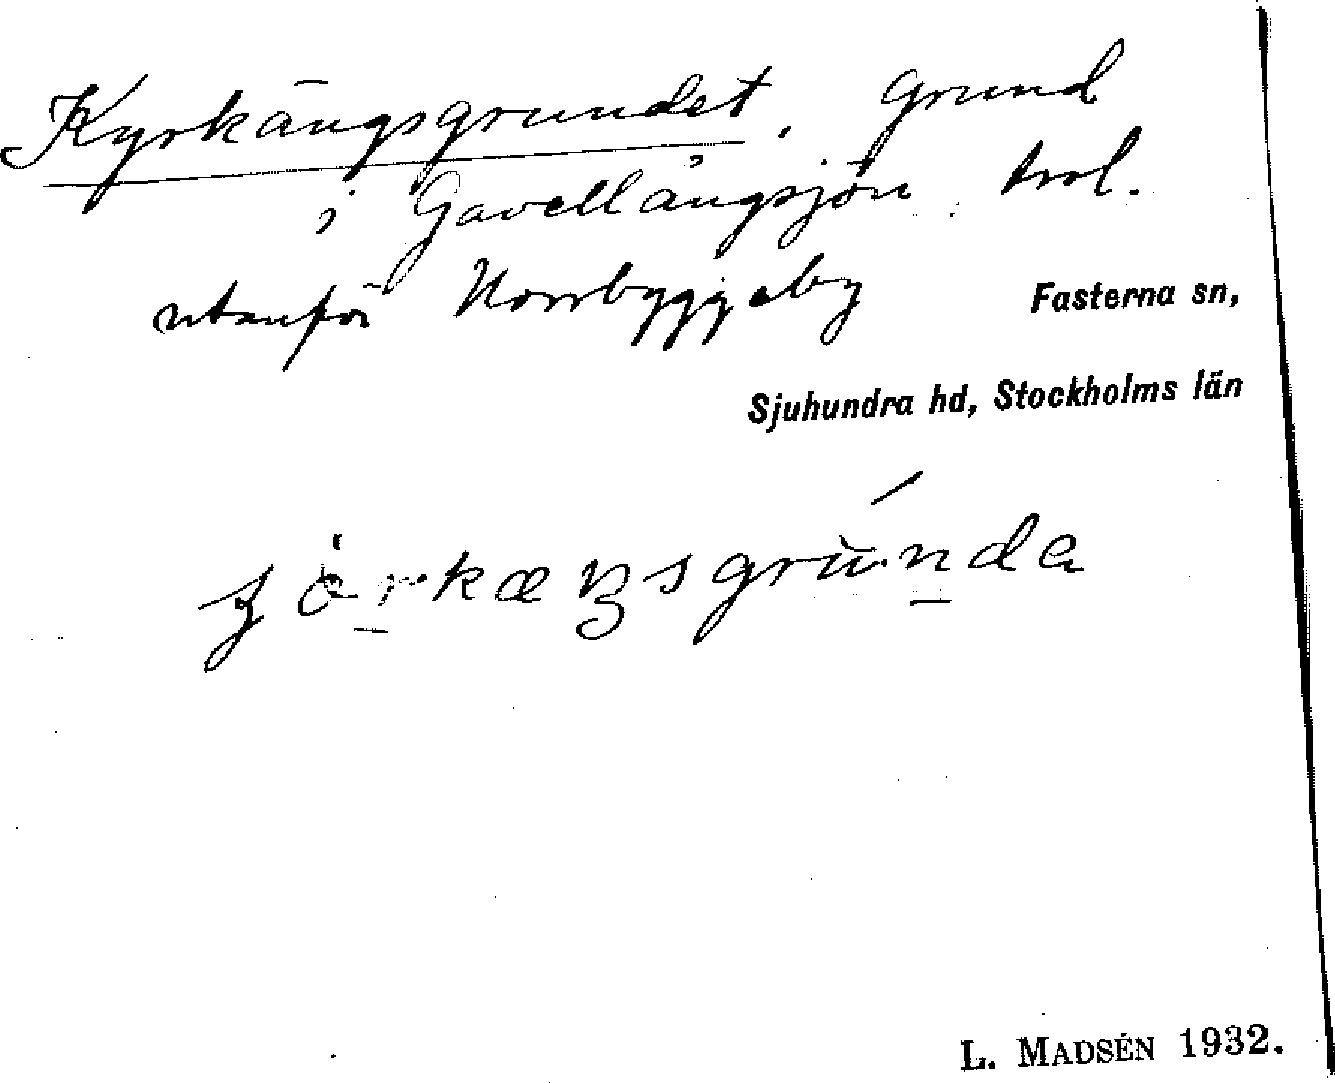 Kyrkängsgrundet, grund
i Gavellångsjön, trol.
utanför Norrbyggeby
Fasterna sn,
Sjuhundra hd, Stockholms län
L. MADSÉN 1932.